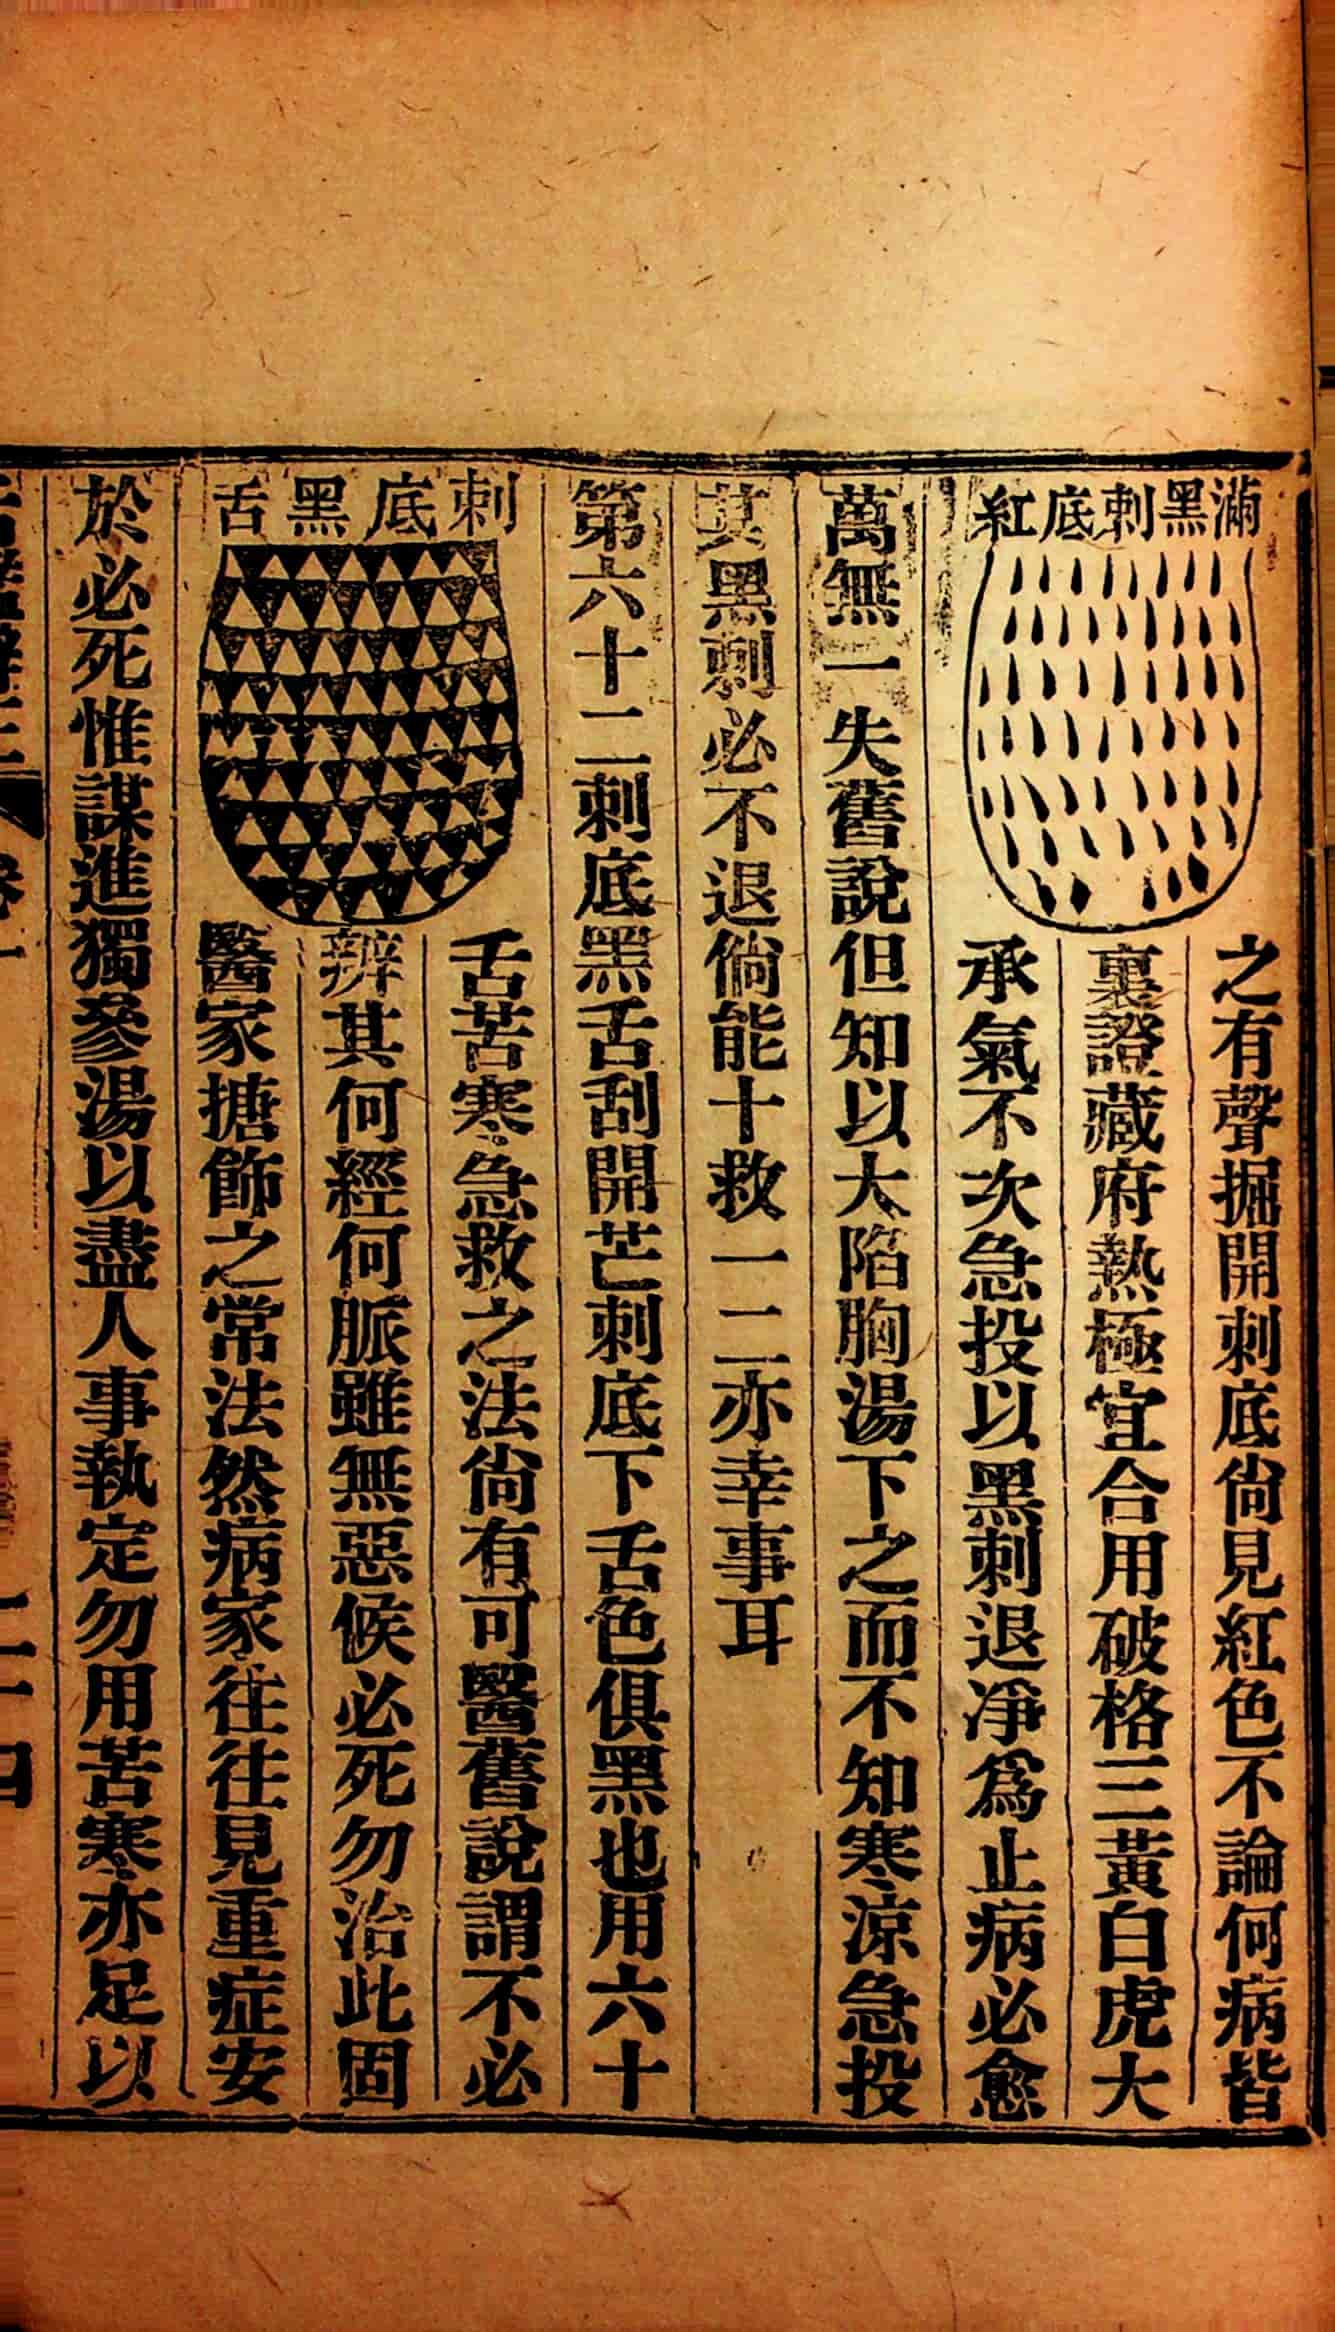 滿黑刺底紅
之有聲掘開刺底尙見紅色不論何病皆
裏證藏府熱極宜合用破格三黃白虎大
承氣不次急投以黑刺退淨爲止病必愈
萬無一失舊說但知以大陷胸湯下之而不知寒涼急投
其黑刺必不退倘能十救一二亦幸事耳
第六十二刺底黑舌刮開芒刺底下舌色俱黑也用六十
刺底黑舌
舌苦寒急救之法尙有可醫舊說謂不必
辨其何經何脈雖無惡候必死勿治此固
醫家搪飾之常法然病家往往見重症安
於必死惟謀進獨參湯以盡人事執定勿用苦寒亦足以